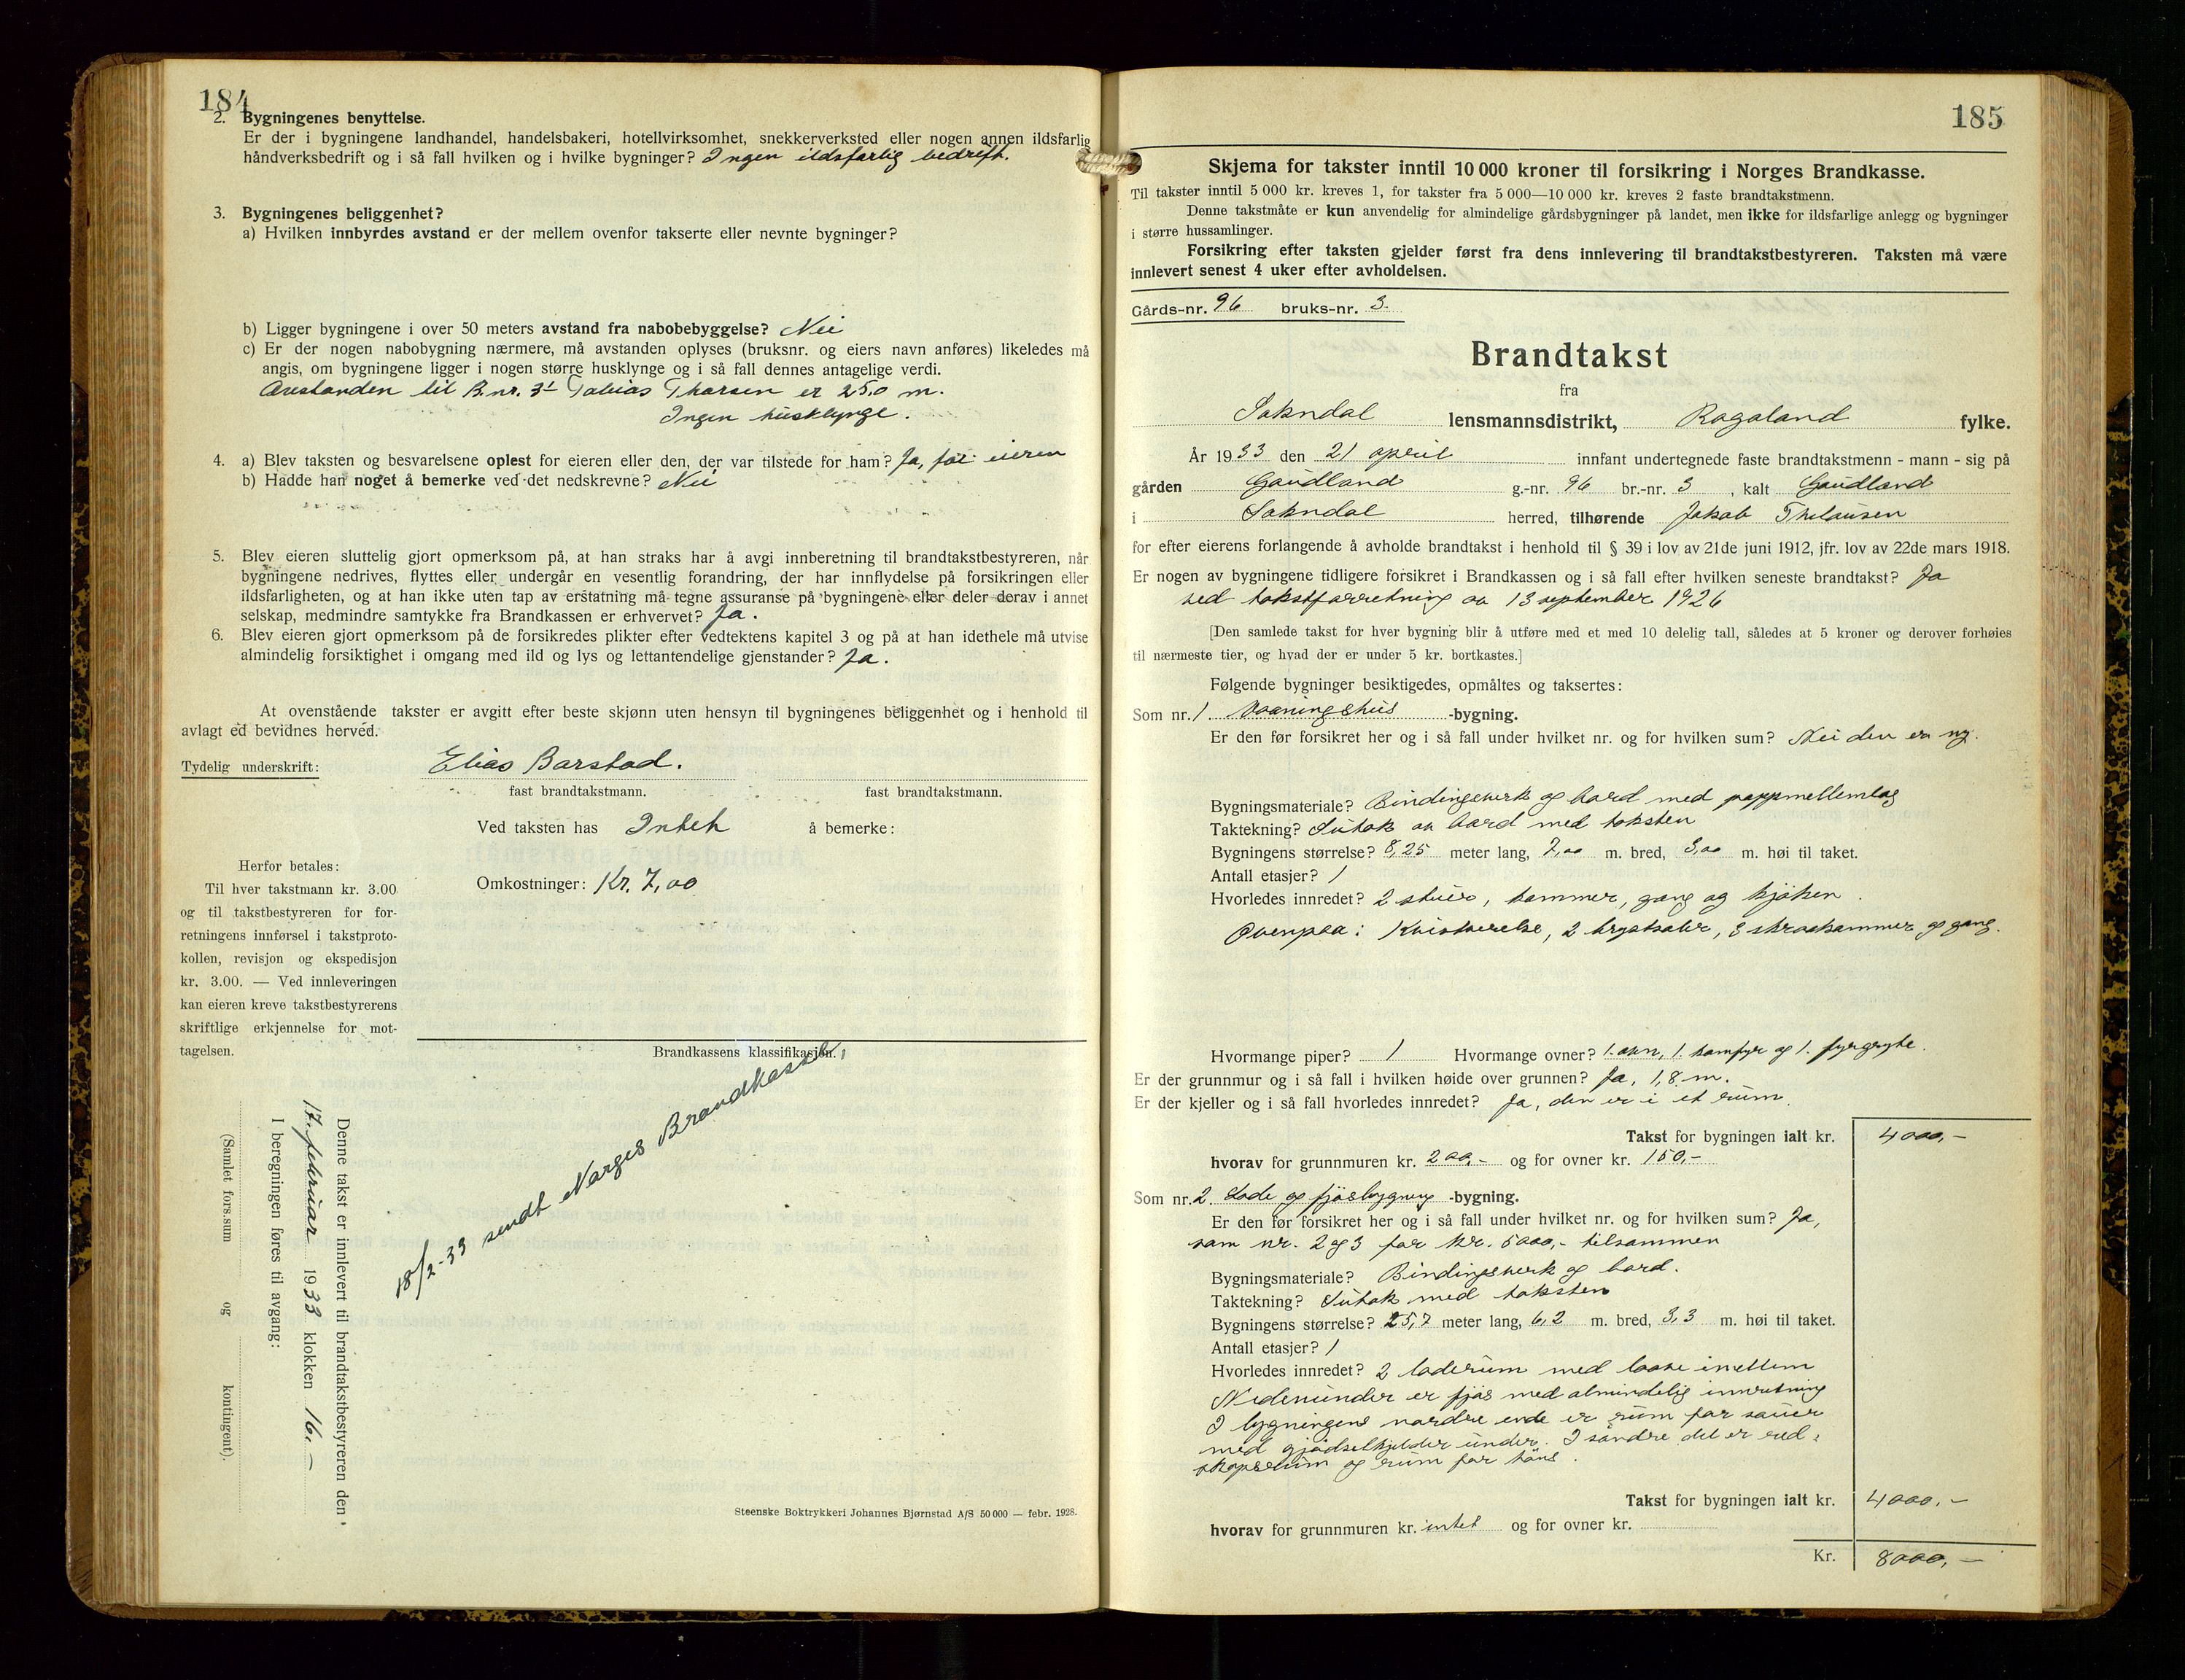 184
2. Bygningenes benyttelse.
Er der i bygningene landhandel, handelsbakeri, hotellvirksomhet, snekkerverksted eller nogen annen ildsfarlig
håndverksbedrift og i så fall hvilken og i hvilke bygninger? Ingen ildsfarlig bedrift.
3. Bygningenes beliggenhet?
a) Hvilken innbyrdes avstand er der mellem ovenfor takserte eller nevnte bygninger?
b) Ligger bygningene i over 50 meters avstand fra nabobebyggelse? Nei
c) Er der nogen nabobygning nærmere, må avstanden oplyses (bruksnr. og eiers navn anføres) likeledes må
angis, om bygningene ligger i nogen større husklynge og i så fall dennes antagelige verdi.
Avstanden til B.nr. 31 Tobias Thorsen er 25.0 m.
Ingen husklynge.
4. a) Blev taksten og besvarelsene oplest for eieren eller den, der var tilstede for ham? Ja, for eieren
b) Hadde han noget å bemerke ved det nedskrevne? Nei
5. Blev eieren sluttelig gjort opmerksom på, at han straks har å avgi innberetning til brandtakstbestyreren, når
bygningene nedrives, flyttes eller undergår en vesentlig forandring, der har innflydelse på forsikringen eller
ildsfarligheten, og at han ikke uten tap av erstatning må tegne assuranse på bygningene eller deler derav i annet
selskap, medmindre samtykke fra Brandkassen er erhvervet? Ja.
6. Blev eieren gjort opmerksom på de forsikredes plikter efter vedtektens kapitel 3 og på at han idethele må utvise
almindelig forsiktighet i omgang med ild og lys og lettantendelige gjenstander? Ja.
At ovenstående takster er avgitt efter beste skjønn uten hensyn til bygningenes beliggenhet og i henhold til
avlagt ed bevidnes herved.
Tydelig underskrift: Elias Barstad.
fast brandtakstmann. fast brandtakstmann.
Ved taksten has Intet å bemerke:
Omkostninger: Kr. 7,00
Herfor betales:
Til hver takstmann kr. 3.00
og til takstbestyreren for for-
retningens innførsel i takstproto-
kollen, revisjon og ekspedisjon
kr. 3.00. — Ved innleveringen
kan eieren kreve takstbestyrerens
skriftlige erkjennelse for mot-
tagelsen.
Brandkassens klassifikasjon.
18/2-33 sendt Norges Brandkasse,
Denne takst er innlevert til brandtakstbestyreren den
17. februar 1933 klokken 16.-
I beregningen føres til avgang:
(Samlet fors.sum og kontingent).
Steenske Boktrykkeri Johannes Bjørnstad A/S 50 000 — febr. 1928.
185
Skjema for takster inntil 10 000 kroner til forsikring i Norges Brandkasse.
Til takster inntil 5 000 kr. kreves 1, for takster fra 5 000—10 000 kr. kreves 2 faste brandtakstmenn.
Denne takstmåte er kun anvendelig for almindelige gårdsbygninger på landet, men ikke for ildsfarlige anlegg og bygninger
i større hussamlinger.
Forsikring efter taksten gjelder først fra dens innlevering til brandtakstbestyreren. Taksten må være
innlevert senest 4 uker efter avholdelsen.
Gårds-nr. 96 bruks-nr. 3
Brandtakst
fra
Sokndal lensmannsdistrikt, Rogaland fylke.
År 1933 den 21 april innfant undertegnede faste brandtakstmenn - mann - sig på
gården Gaudland g.-nr. 96 br.-nr. 3, kalt Gaudland
i Sokndal herred, tilhørende Jakob
for efter eierens forlangende å avholde brandtakst i henhold til § 39 i lov av 21de juni 1912, jfr. lov av 22de mars 1918.
Er nogen av bygningene tidligere forsikret i Brandkassen og i så fall efter hvilken seneste brandtakst? Ja
ved takstforretning av 13 september 1926
[Den samlede takst for hver bygning blir å utføre med et med 10 delelig tall, således at 5 kroner og derover forhøies
til nærmeste tier, og hvad der er under 5 kr. bortkastes.]
Følgende bygninger besiktigedes, opmåltes og taksertes:
Som nr. 1 Vaaningshus -bygning.
Er den før forsikret her og i så fall under hvilket nr. og for hvilken sum? Nei den er ny.
Bygningsmateriale? Bindingsverk og bord med pappmellemlag
Taktekning? Sutak av bord med taksten
Bygningens størrelse? 8,25 meter lang, 7,00 m. bred, 3,00 m. høi til taket.
Antall etasjer? 1
Hvorledes innredet? 2 stuer, kammer, gang og kjøken.
Ovenpaa: Kvistverelse, 2 brystsaler, 3 skraakammer og gang.
Hvormange piper? 1 Hvormange ovner? 1. ovn, 1. komfyr og 1. fyrgryte.
Er der grunnmur og i så fall i hvilken høide over grunnen? Ja, 1,8 m.
Er der kjeller og i så fall hvorledes innredet? Ja, den er i et rum.
Takst for bygningen ialt kr. 4000,-
hvorav for grunnmuren kr. 200,- og for ovner kr. 150,-
Som nr. 2. Lade og fjøsbygning -bygning.
Er den før forsikret her og i så fall under hvilket nr. og for hvilken sum? Ja,
som nr. 2 og 3 for kr. 5000,- tilsammen
Bygningsmateriale? Bindingsverk og bord.
Taktekning? Sutak med taksten
Bygningens størrelse? 25,7 meter lang, 6,2 m. bred, 3,3 m. høi til taket.
Antall etasjer? 1
Hvorledes innredet? 2 laderum med laave imellem
Nedenunder er fjøs med almindelig innretning
I bygningens nordre ende er rum for sauer
med gjødselkjelder under. I søndre del er red-
skapsrum og rum for høns.
Takst for bygningen ialt kr. 4000,-
hvorav for grunnmuren kr. intet og for ovner kr.
Kr. 8000,-